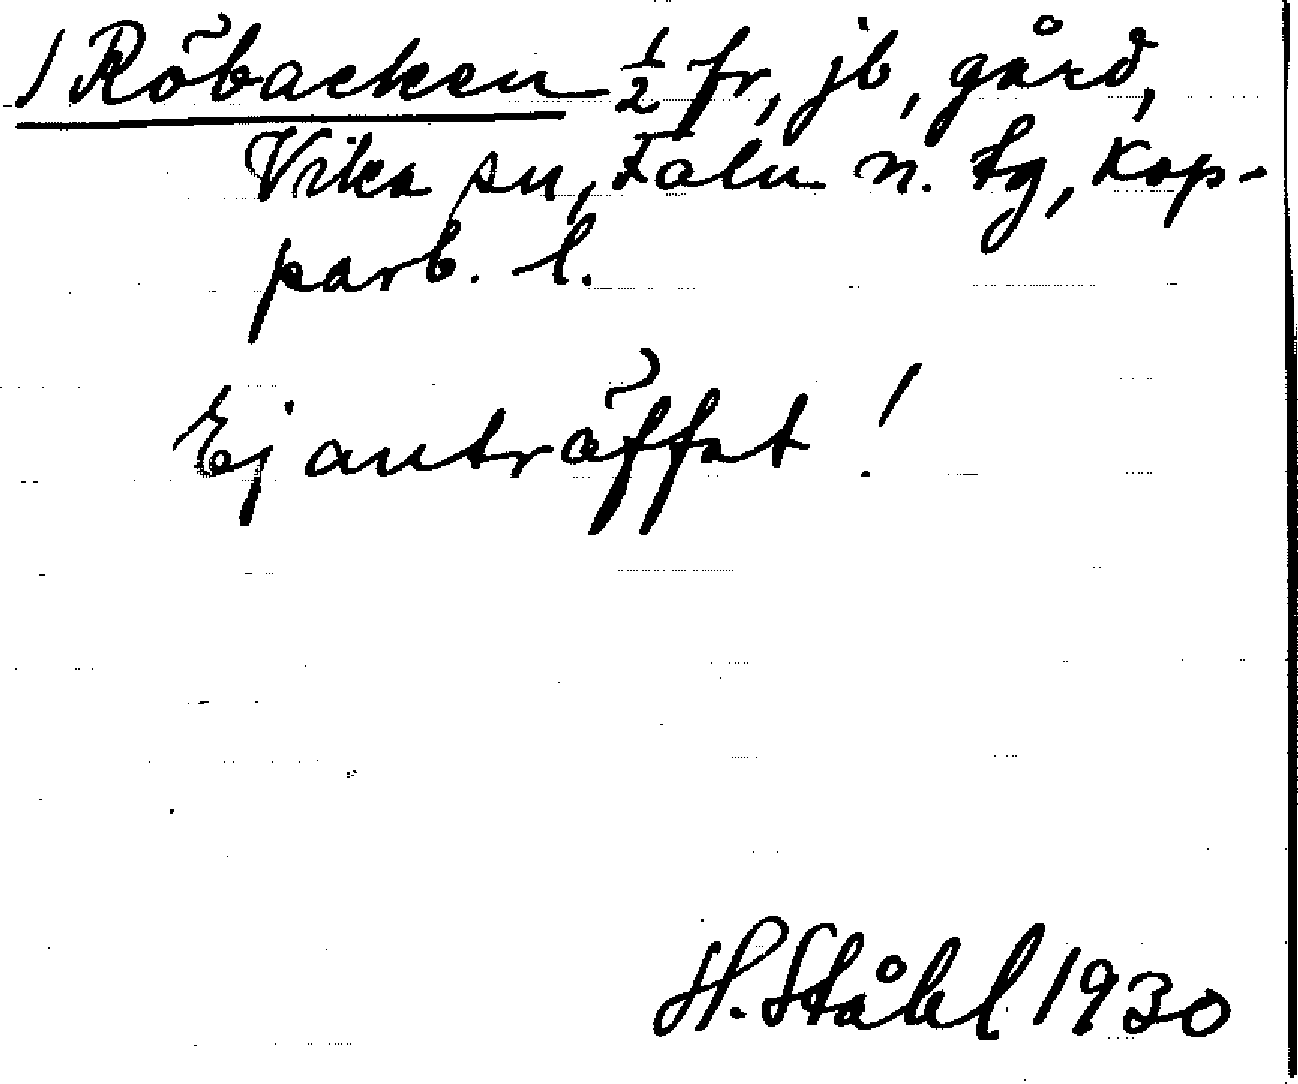 / Röbacken ½ fr, jb, gård,
Vika sn, Falu n. tg, Kop-
parb. l.
Ej anträffat !
H. Ståhl 1930